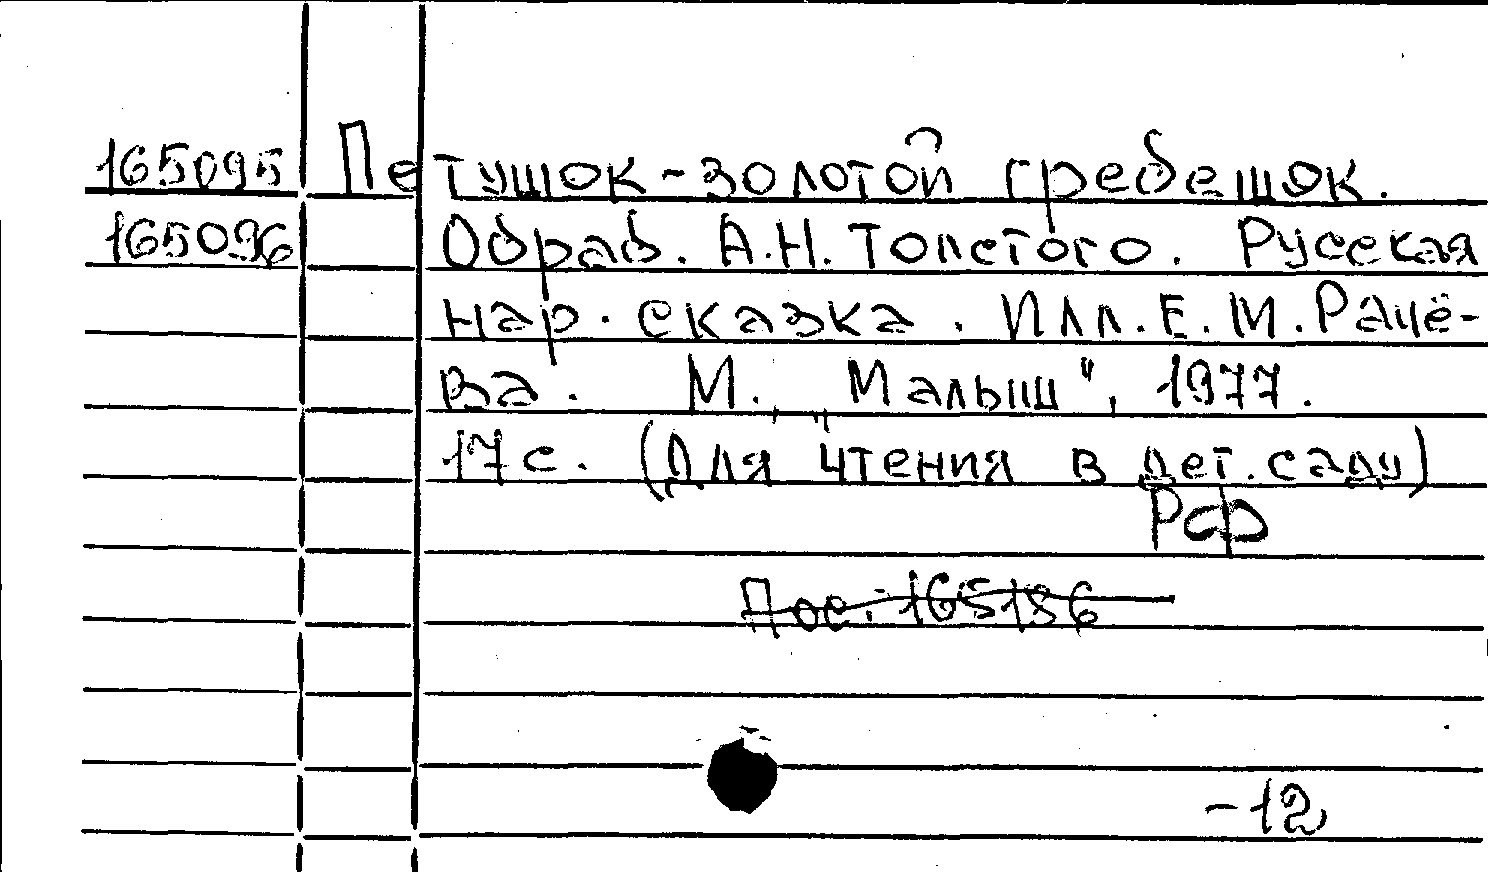 165095 Петушок-золотой гребешок.
165096 Обраб. А.Н. Толстого. Русская
нар. сказка. Илл. Е.М. Рачё-
ва. М., "Малыш", 1977.
17 с. (Для чтения в дет. саду)
Рф
Пос. 165186
-12